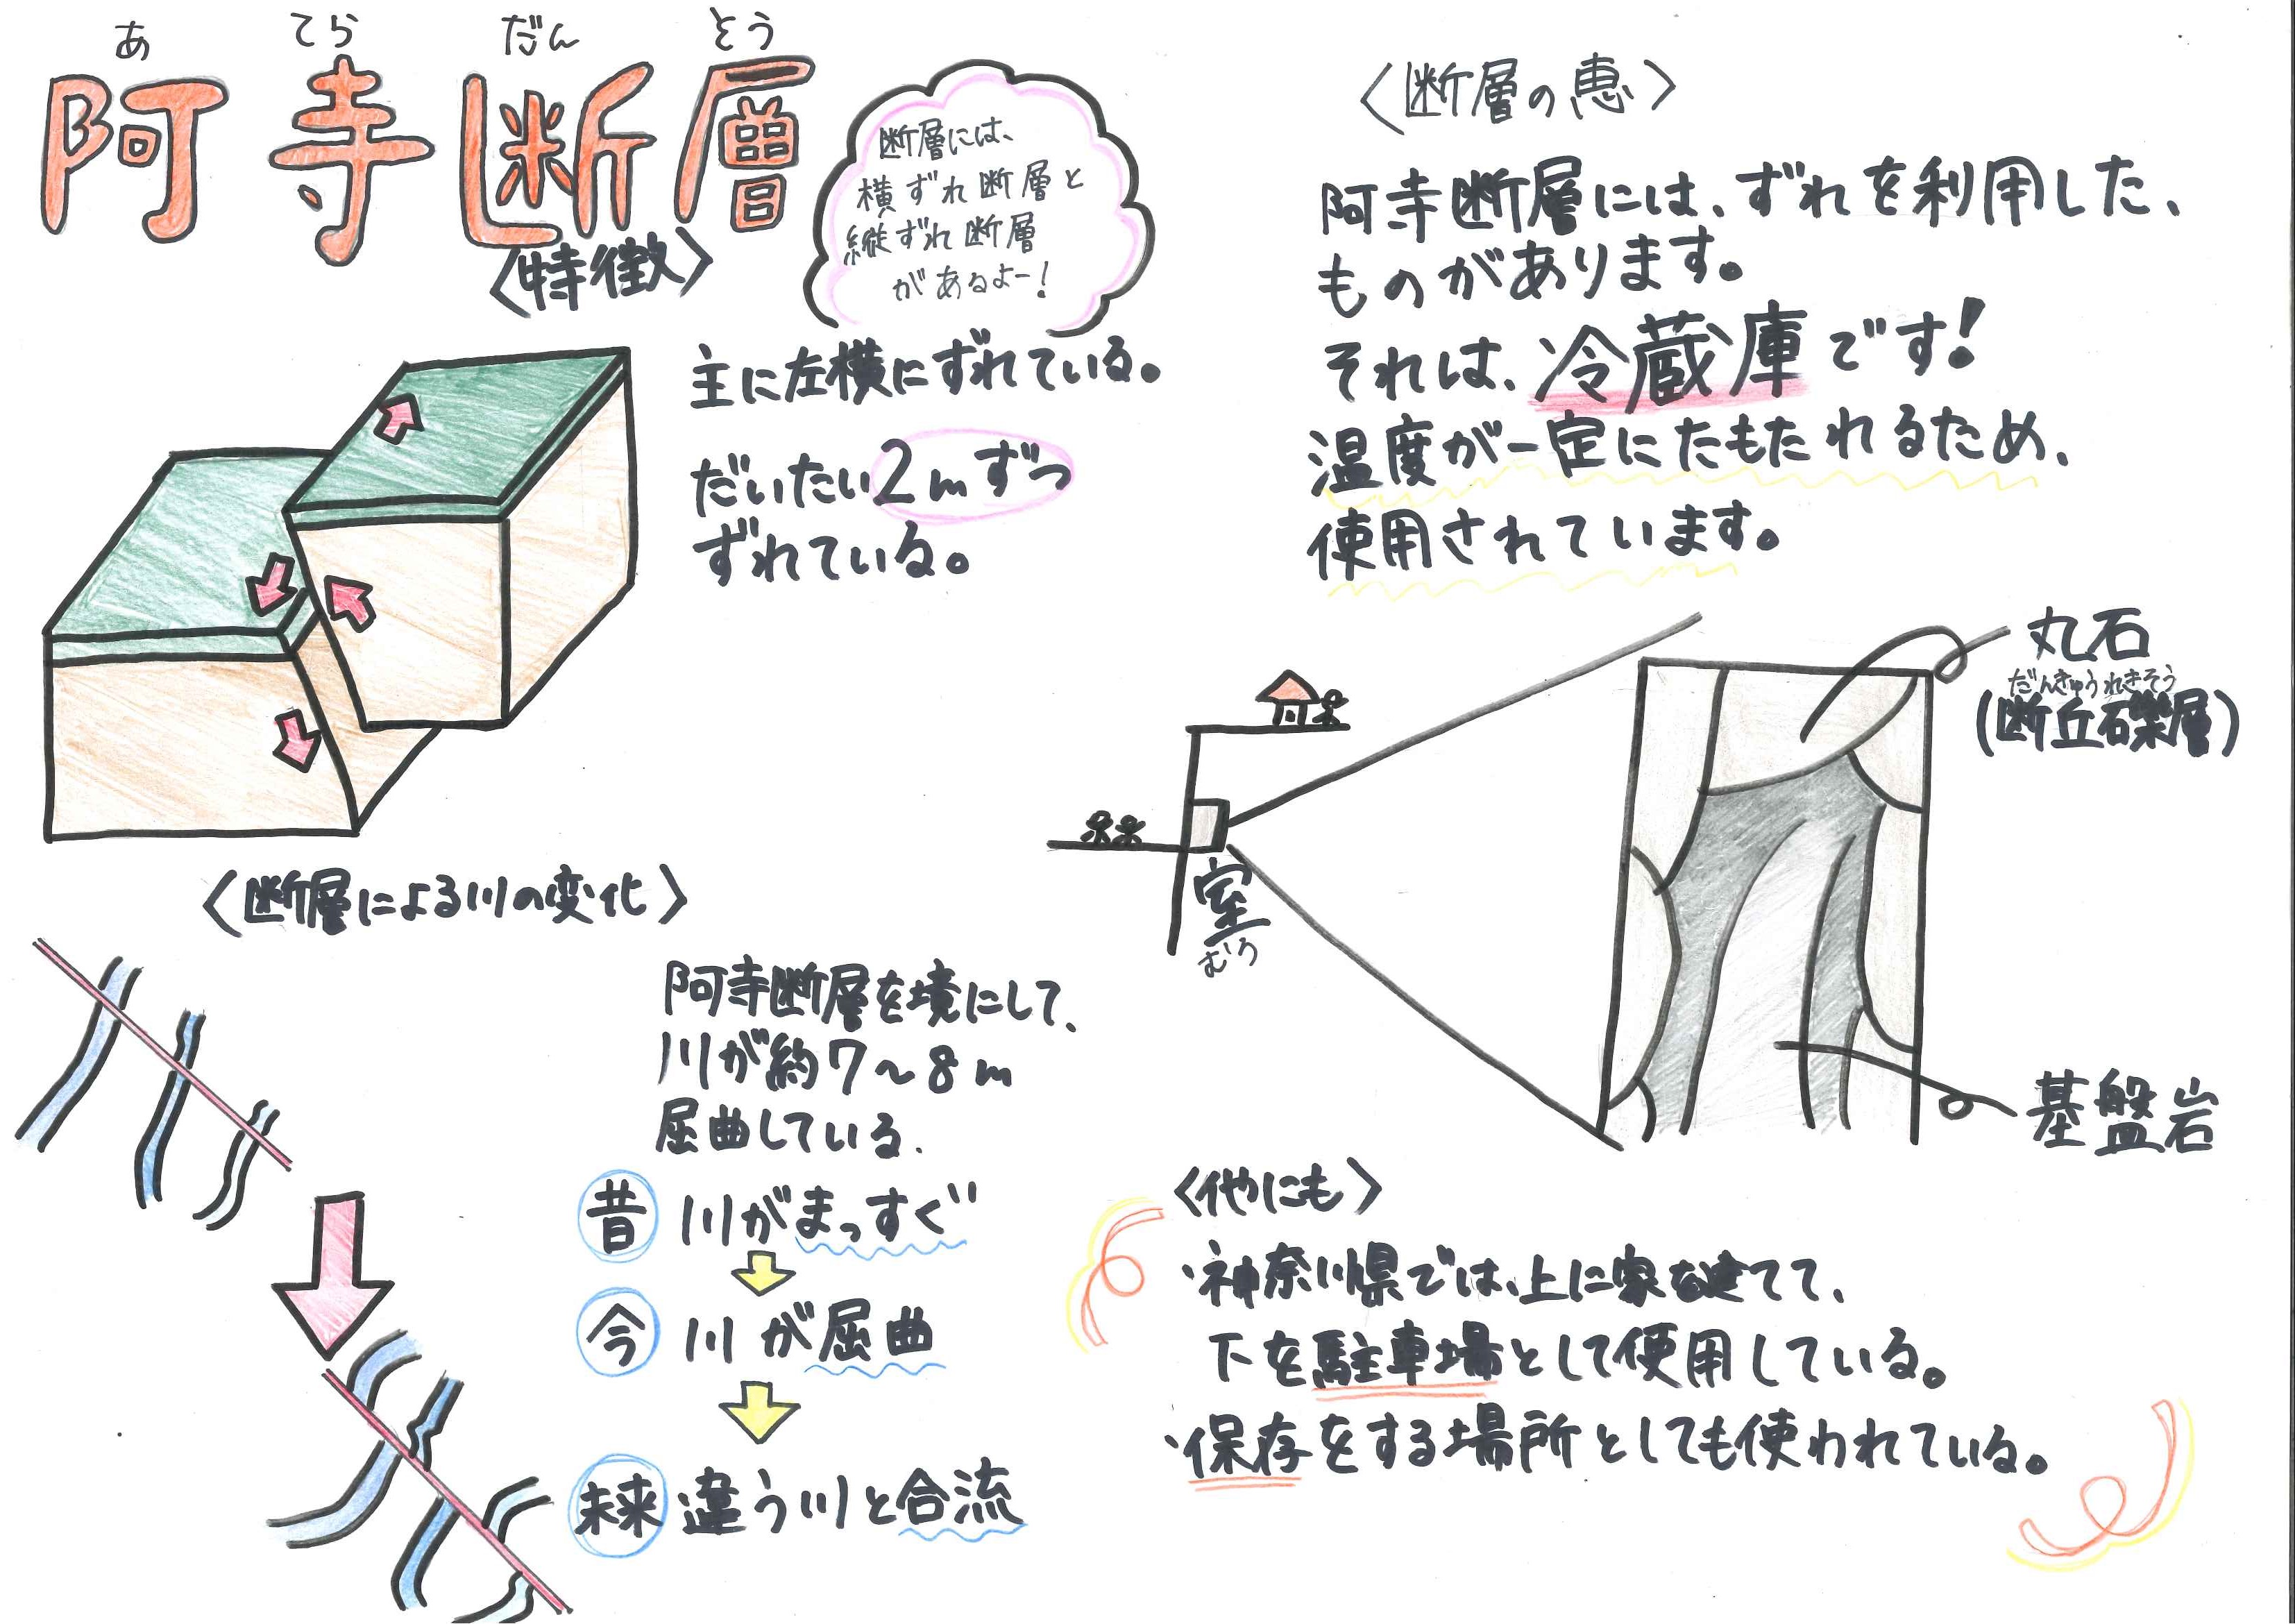 あ てら だん とう
阿寺断層
断層には、
横ずれ断層と
縦ずれ断層
があるよー!
〈特徴〉
主に左横にずれている。
だいたい2mずつ
ずれている。
〈断層による川の変化〉
阿寺断層を境にして、
川が約7~8m
屈曲している.
昔 川がまっすぐ
今 川が屈曲
未来 違う川と合流
〈断層の恵〉
阿寺断層には、ずれを利用した、
ものがあります。
それは、冷蔵庫です!
温度が一定にたもたれるため、
使用されています。
室
むろ
丸石
だんきゅうれきそう
(断丘礫層)
基盤岩
〈他にも〉
・神奈川県では、上に家を建てて、
下を駐車場として使用している。
・保存をする場所としても使われている。